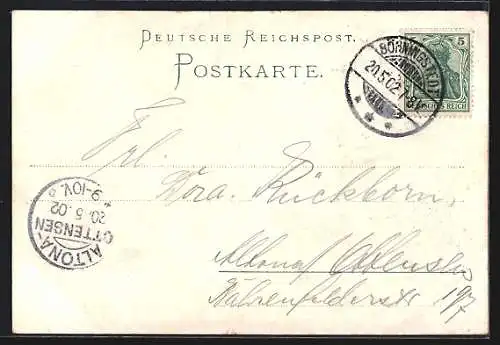 DEUTSCHE REICHSPOST.
POSTKARTE.
BÖNNINGSTEDT
20.5.02 7-8V.
5
DEUTSCHES REICH
Frl.
Dora Rückborn,
Altona/Ottensen
Bahrenfelderstr 197
ALTONA-
OTTENSEN
20.5.02
9-10V.